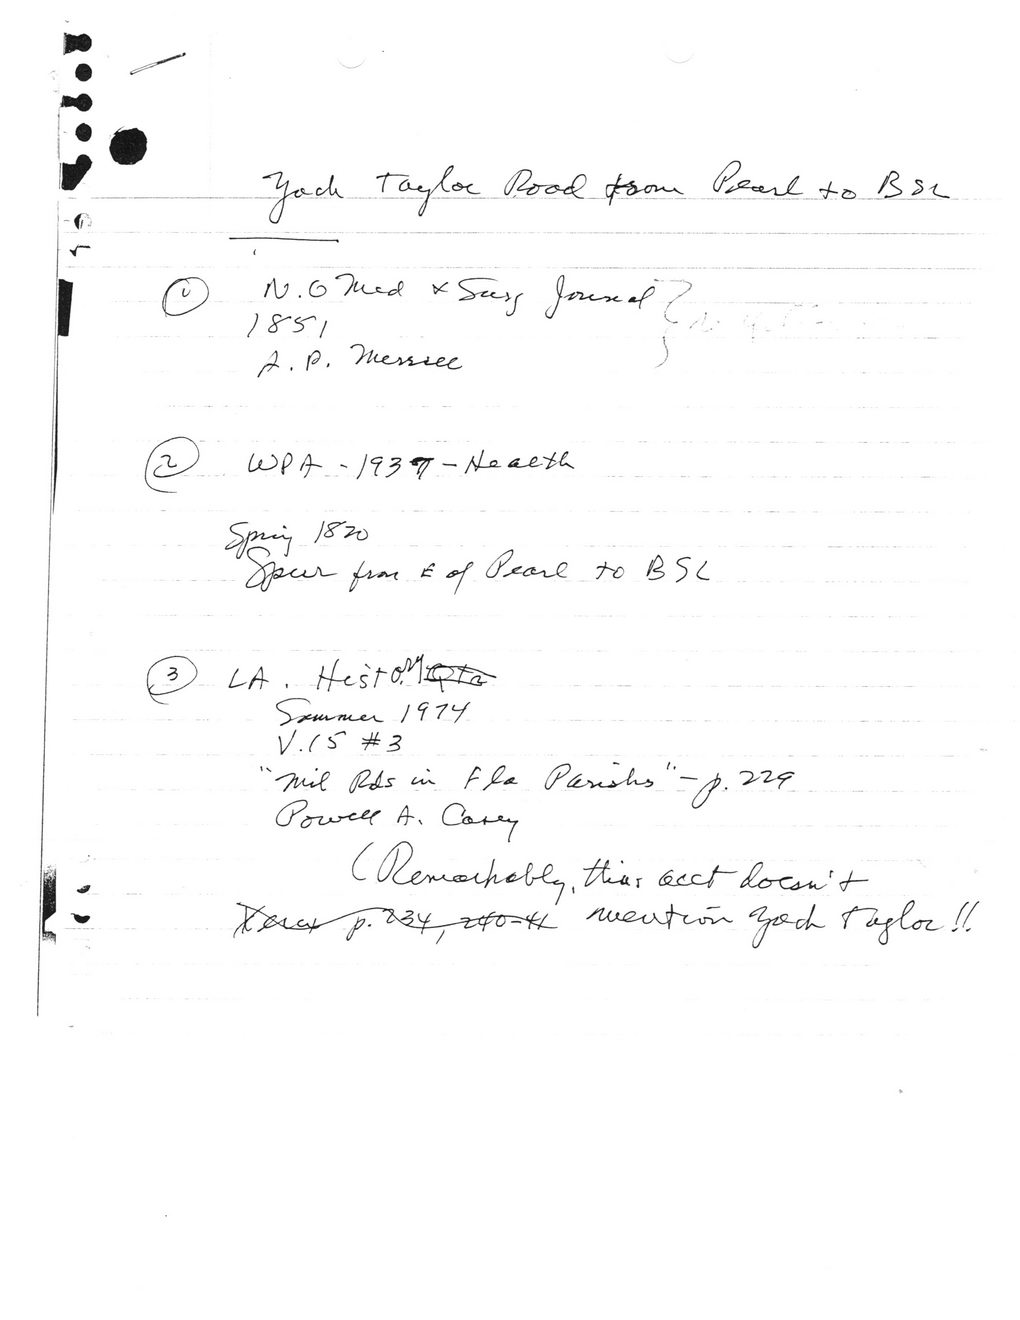 Zach Taylor Road from Pearl to BSL
① N.O Med & Surg Journal
1851
A. P. Merrill
② WPA - 1937 - Health
Spring 1820
Spur from E of Pearl to BSL
③ LA. History Qtr
Summer 1974
V.15 #3
"Mil Rds in Fla Parishs" - p. 229
Powell A. Casey
(Remarkably, this acct doesn't
Xerox p. 234, 240-41 mention Zach Taylor!!